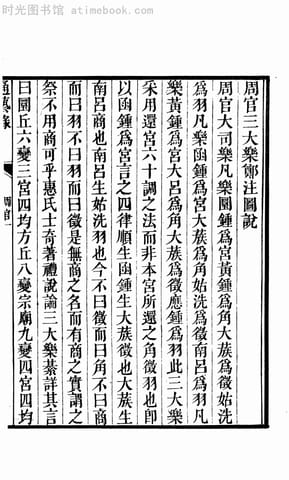 时光图书馆 - www.atimebook.com
周官三大樂鄭注圖說
周官大司樂凡樂圜鍾爲宮黃鍾爲角大蔟爲徵姑洗
爲羽凡樂函鍾爲宮大蔟爲角姑洗爲徵南呂爲羽凡
樂黃鍾爲宮大呂爲角大蔟爲徵應鍾爲羽此三大樂
采用還宮六十調之法而非本宮所還之角徵羽也卽
以函鍾爲宮言之四律順生函鍾生大蔟徵也大蔟生
南呂商也南呂生姑洗羽也今不曰徵而曰角不曰商
而曰羽不曰羽而曰徵是無商之名而有商之實謂之
祭不用商可乎惠氏士奇著禮說論三大樂綦詳其言
曰圜丘六變三宮四均方丘八變宗廟九變四宮四均